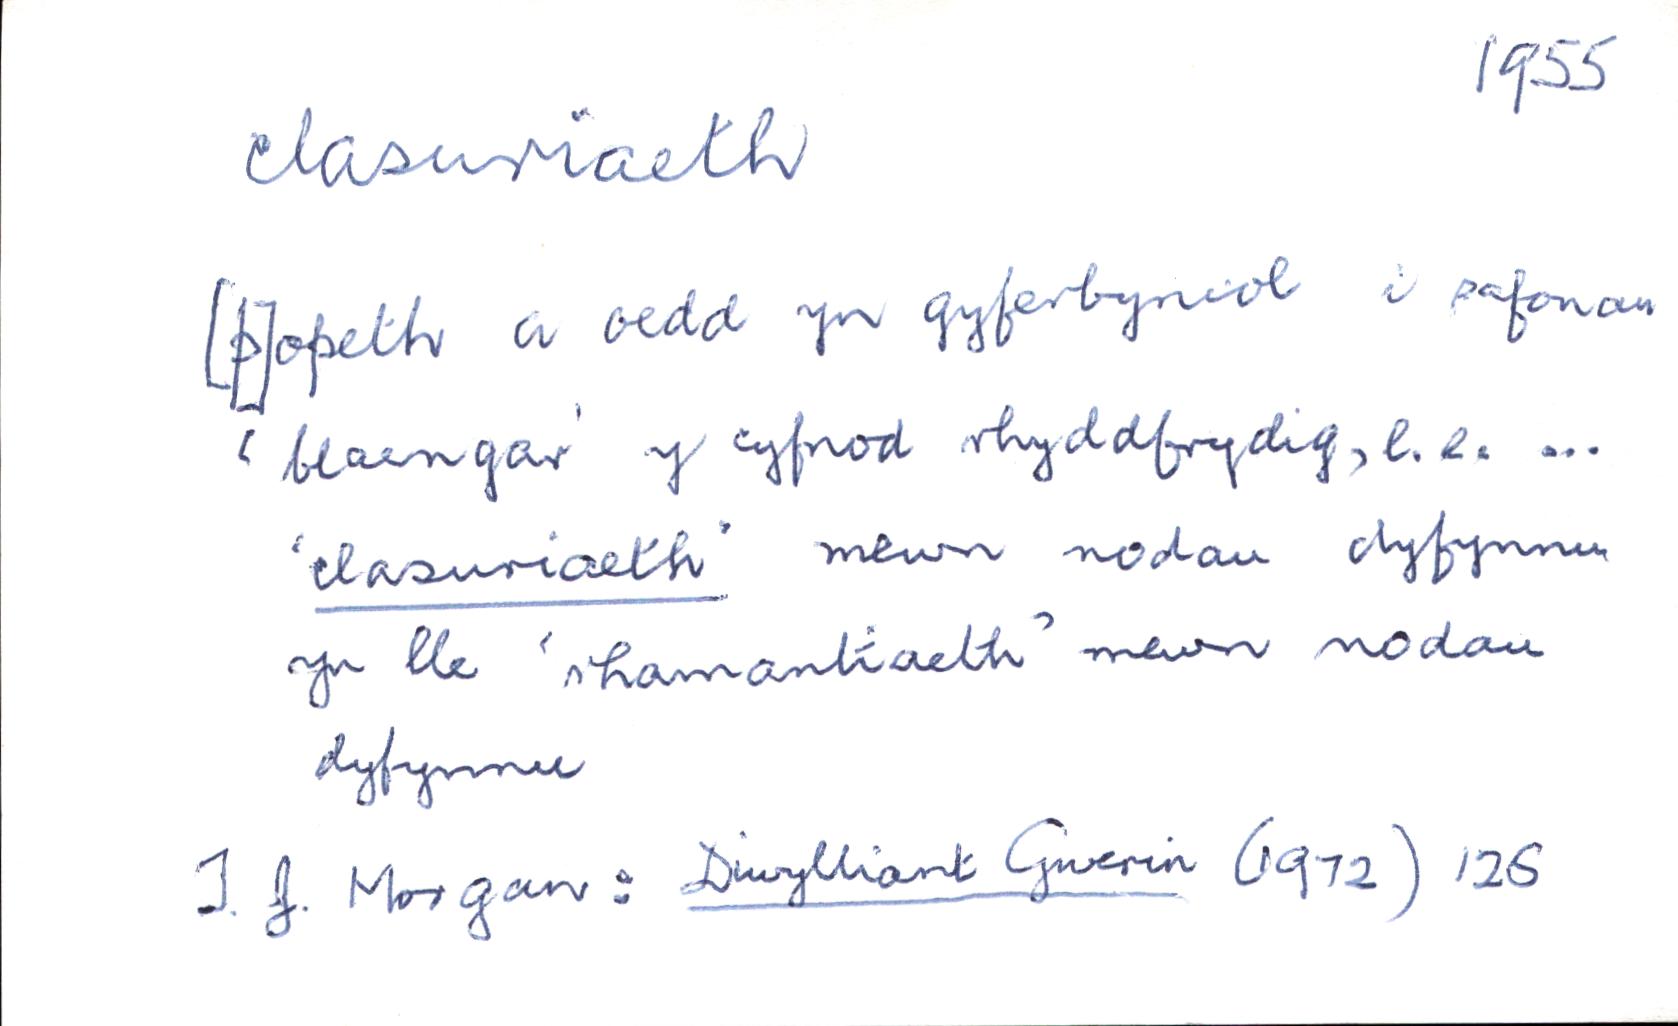 1955
clasuriaeth
[p]opeth a oedd yn gyferbyniol i safonau
'blaengar' y cyfnod rhyddfrydig, h.e. ...
'clasuriaeth' mewn nodau dyfynnu
yn lle 'rhamantiaeth' mewn nodau
dyfynnu
T. J. Morgan: Diwylliant Gwerin (1972) 126